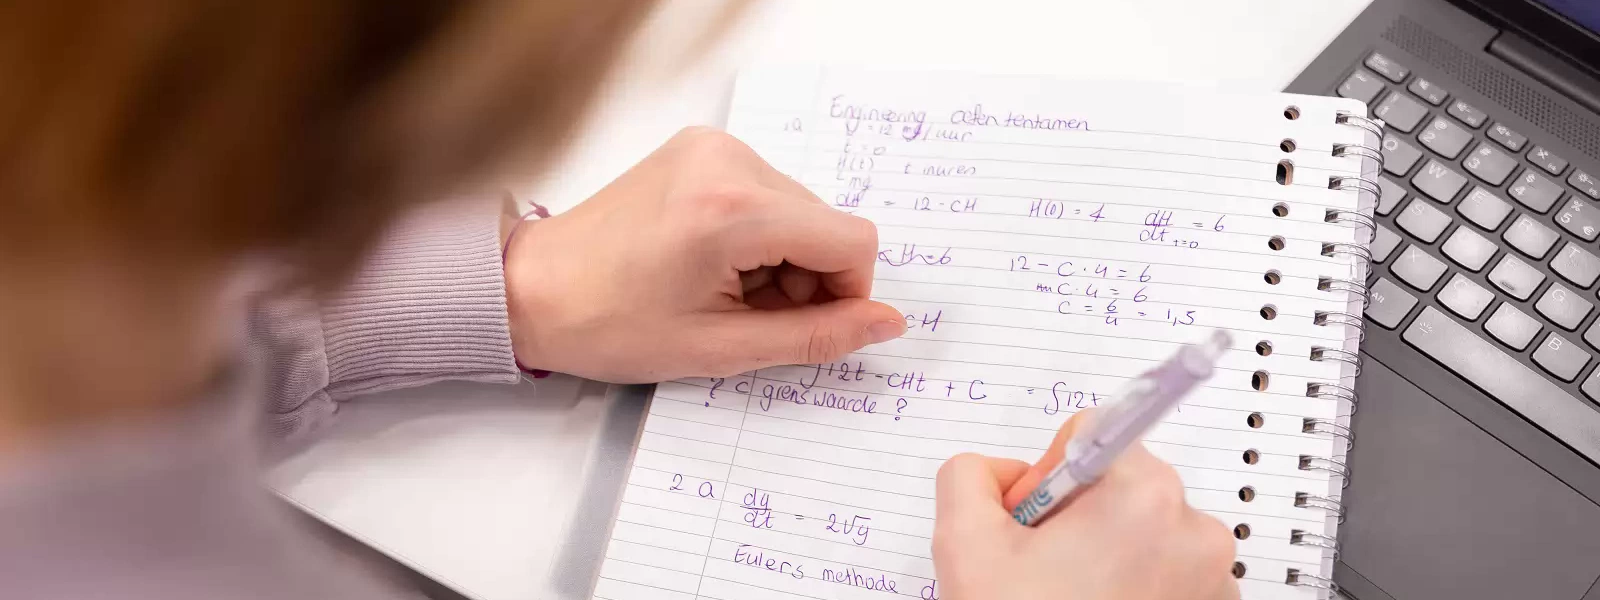 Engineering oefen tentamen
1a
v = 12 /uur
t = 0
H(t) t in uren
mg
dH = 12 - CH H(0) = 4 dH/dt t=0 = 6
12 - C · 4 = 6
C · 4 = 6
C = 6/4 = 1,5
CH
∫12t - CHt + C = ∫12t
? C grenswaarde ?
2 a dy/dt = 2√y
Eulers methode d